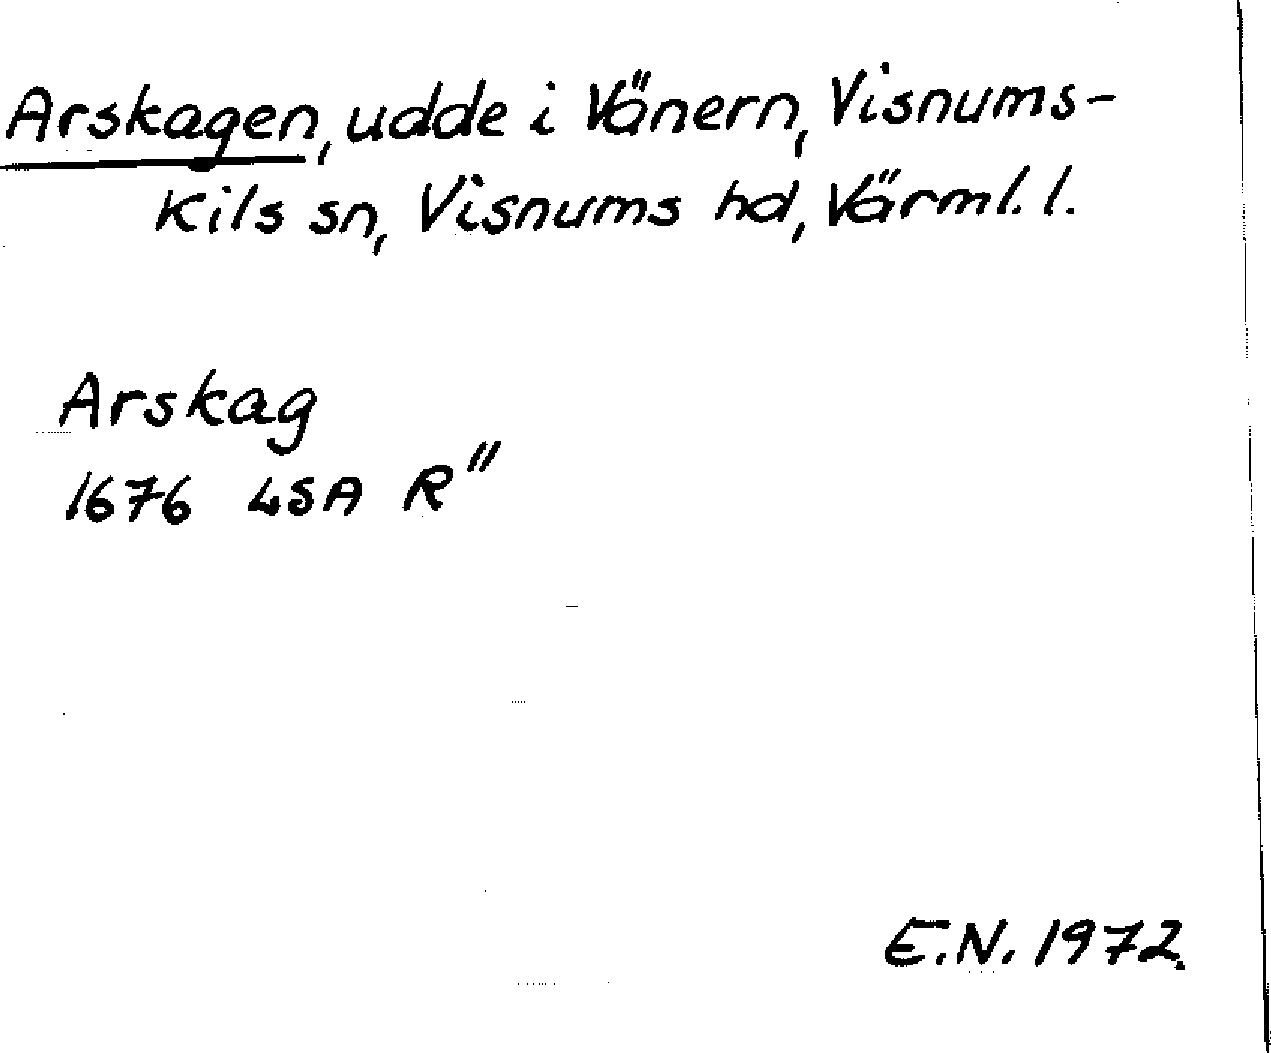 Arskagen, udde i Vänern, Visnums-
Kils sn, Visnums hd, Värml. l.
Arskag
1676 LSA R"
E.N. 1972.